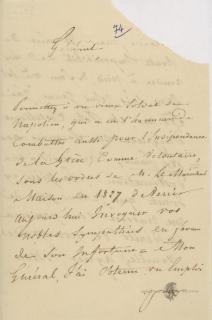 74
Général
Permettez à un vieux Soldat de
Napoléon, qui a eu l'honneur de
Combattre aussi pour l'Indépendance
de la Grèce Comme Volontaire,
sous les ordres de M. Le Maréchal
Maison en 1827, de venir
aujourd'hui Invoquer vos
nobles Sympathies en faveur
de son Infortune = Mon
Général, J'ai obtenu un Emploi